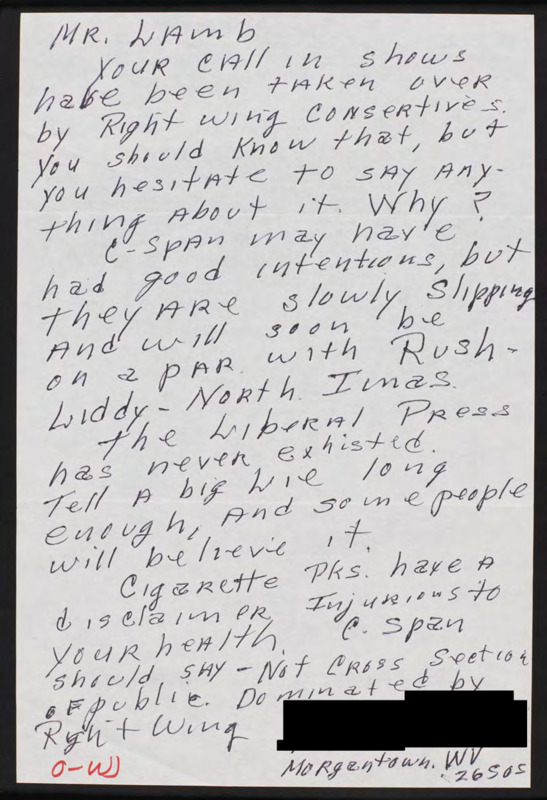 Mr. Lamb
Your call in shows
have been taken over
by Right wing Consertives.
You should know that, but
you hesitate to say any-
thing about it. Why?
C-Span may have
had good intentions, but
they are slowly slipping
and will soon be
on a par with Rush-
Liddy-North. Imas.
The Liberal Press
has never exhisted.
Tell a big lie long
enough, and some people
will believe it.
Cigarette Pks. have a
disclaimer Injurious to
your health.
C. Span
should say - Not Cross Section
of public. Dominated by
Right Wing
Morgantown. WV
26505